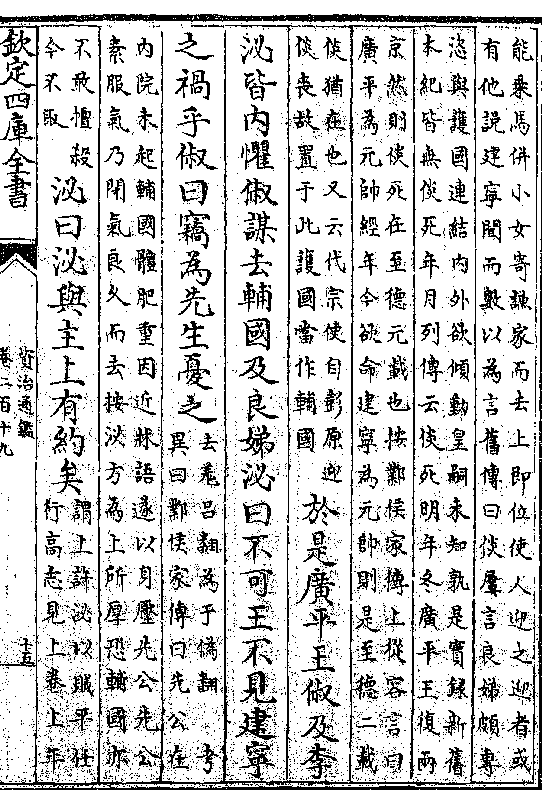 能乘馬併小女寄謙家而去上即位使人迎之迎者或
有他說建寧聞而數以為言舊傳曰倓屢言良娣頗專
恣與護國連結内外欲傾動皇嗣未知孰是實録新舊
本紀皆無倓死年月列傳云倓死明年冬廣平王復兩
京然則倓死在至德元載也按鄴侯家傳上從容言曰
廣平為元帥經年今欲命建寧為元帥則是至德二載
倓猶在也又云代宗使自彭原迎
倓喪故置于此護國當作輔國
於是廣平王俶及李
泌皆内懼俶謀去輔國及良娣泌曰不可王不見建寧
之禍乎俶曰竊為先生憂之
去羌吕翻為于偽翻 考
異曰鄴侯家傳曰先公在
内院未起輔國體肥重因近牀語遂以身壓先公先公
素服氣乃閉氣良久而去按泌方為上所厚恐輔國亦
不敢擅殺
今不取
泌曰泌與主上有約矣
謂上許泌以賊平任
行高志見上卷上年
欽定四庫全書
資治通鑑
卷二百十九
十五